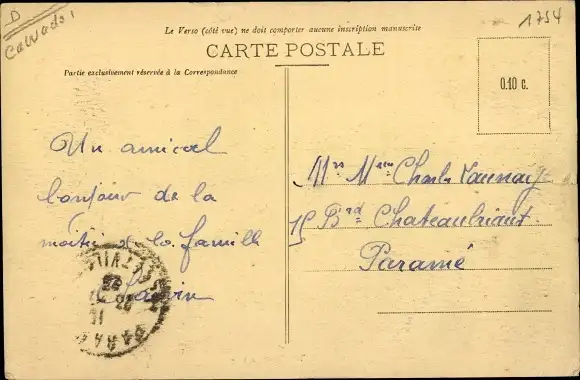 D
Calvados
1754
Le Verso (côté vue) ne doit comporter aucune inscription manuscrite
CARTE POSTALE
Partie exclusivement réservée à la Correspondance
0.10 c.
Un amical
bonjour de la
moitié de la famille
Mr Mme Charles
15 Bd Chateaubriant
Paramé